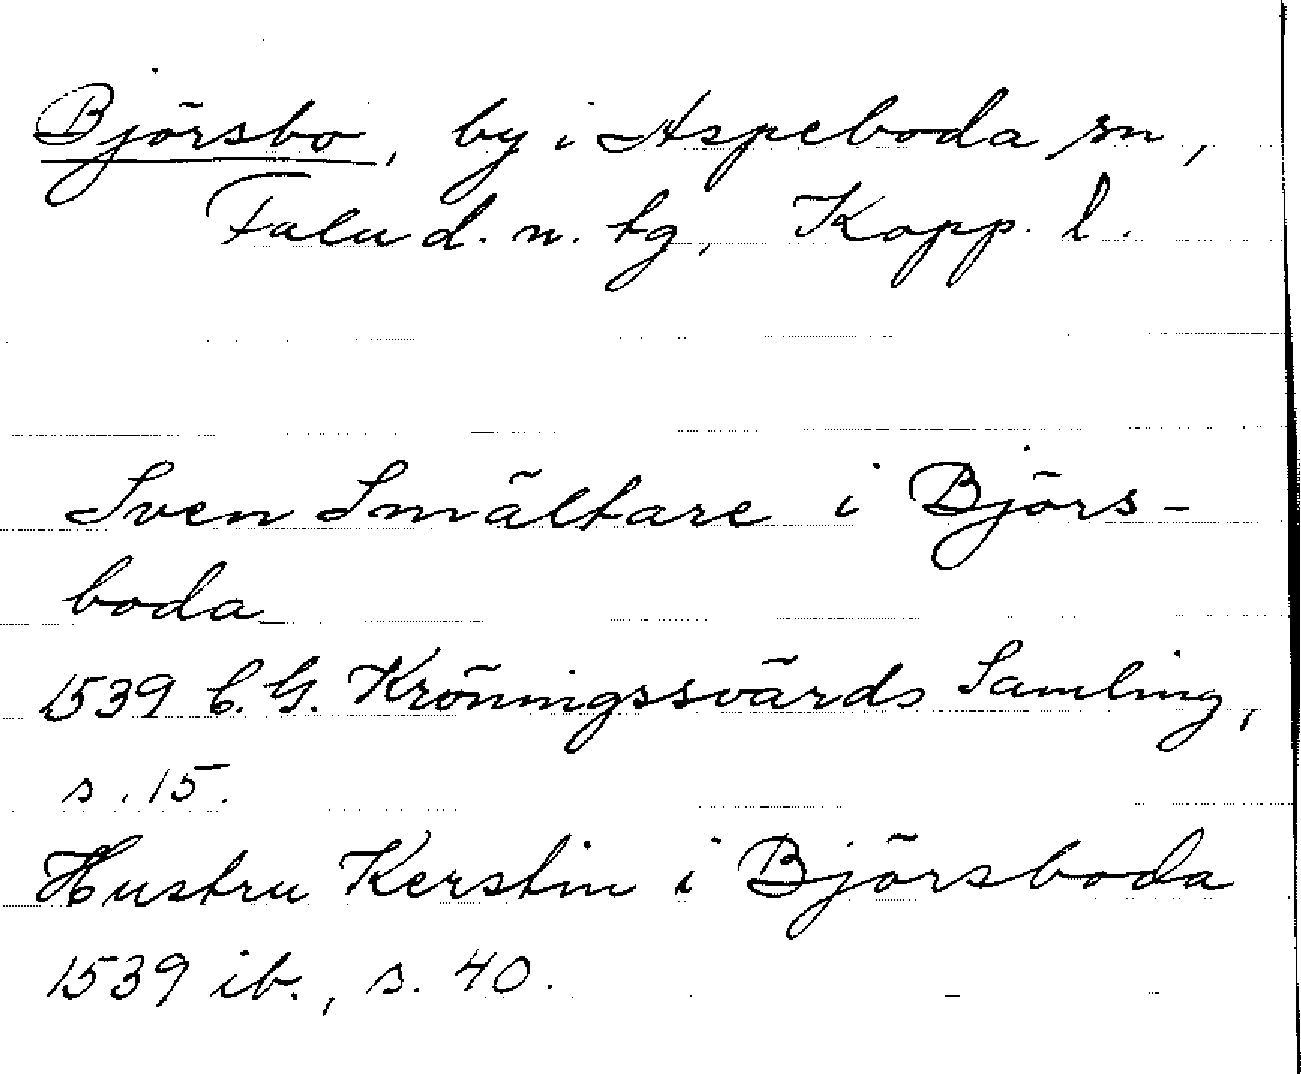 Björsbo, by i Aspeboda sn,
Falu d. n. tg, Kopp. l.
Sven Smältare i Björs-
boda
1539 C. G. Kröningssvärds Samling,
s. 15.
Hustru Kerstin i Björsboda
1539 ib., s. 40.